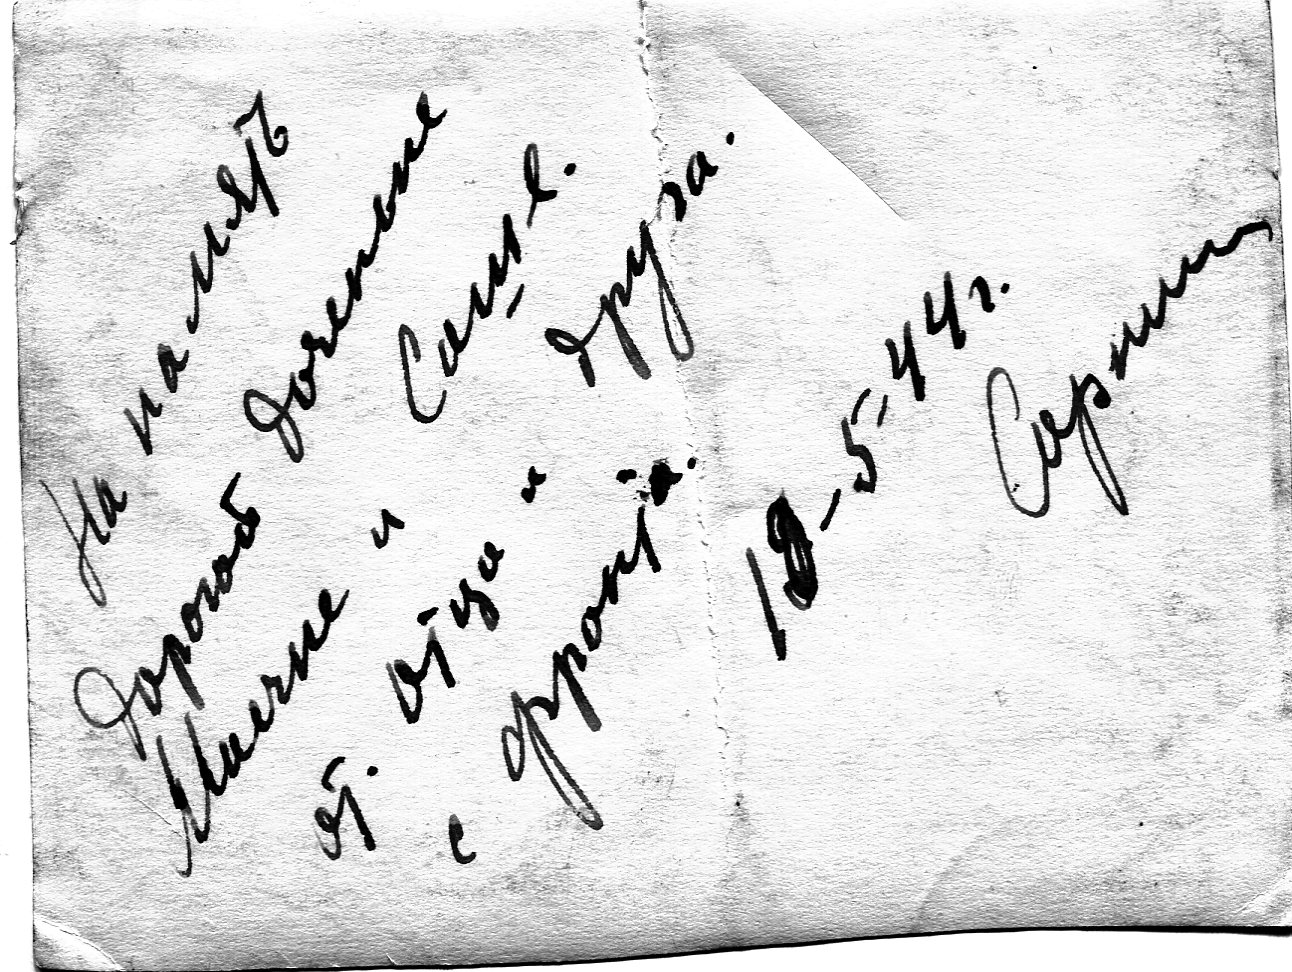 На память
дорогой доченьке
Маечке и Саше.
от. отца и друга.
с фронта.
18-5-44г.